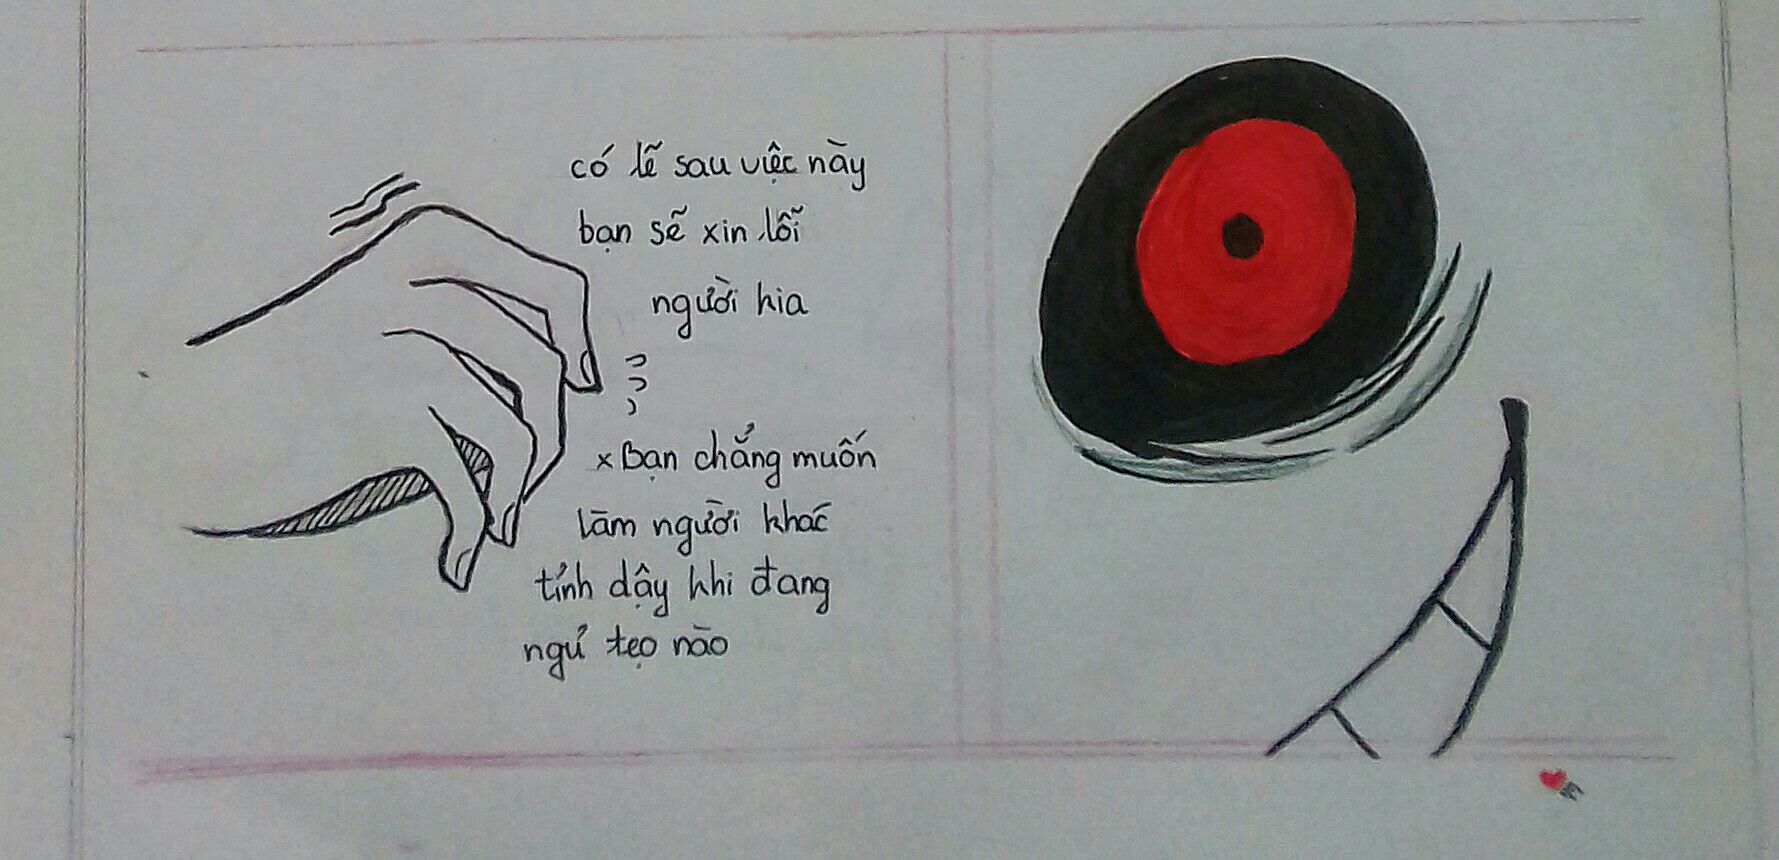 có lẽ sau việc này
bạn sẽ xin lỗi
người kia
x Bạn chẳng muốn
làm người khác
tỉnh dậy khi đang
ngủ tẹo nào